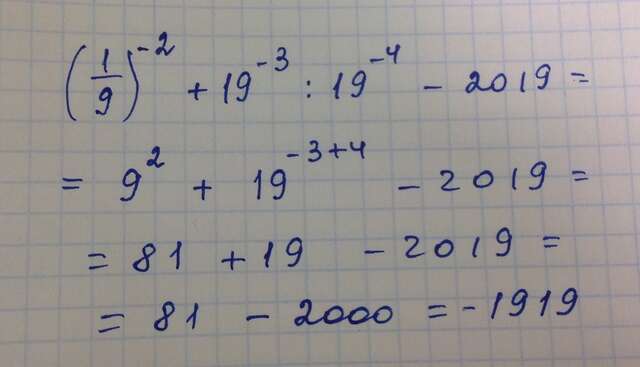 (1/9)^-2 + 19^-3 : 19^-4 - 2019 =
= 9^2 + 19^-3+4 - 2019 =
= 81 + 19 - 2019 =
= 81 - 2000 = -1919